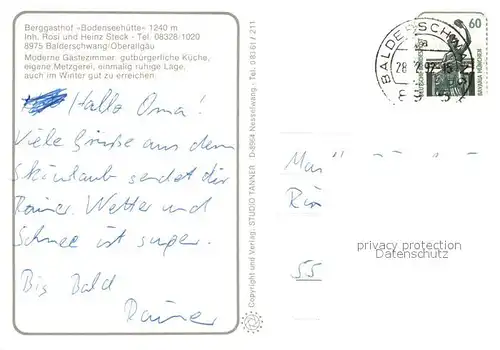 Berggasthof »Bodenseehütte« 1240 m
Inh. Rosi und Heinz Steck - Tel. 08328/1020
8975 Balderschwang/Oberallgäu
Moderne Gästezimmer, gutbürgerliche Küche,
eigene Metzgerei, einmalig ruhige Lage,
auch im Winter gut zu erreichen.
Hallo Oma!
Viele Grüße aus dem
Skiurlaub sendet dir
Rainer. Wetter und
Schnee ist super.
Bis Bald
Rainer
Copyright und Verlag: STUDIO TANNER · D-8964 Nesselwang · Tel. 08361/211
BALDERSCHWANG
28.2.92-15
DEUTSCHE BUNDESPOST
60
BAVARIA MÜNCHEN
55
privacy protection
Datenschutz